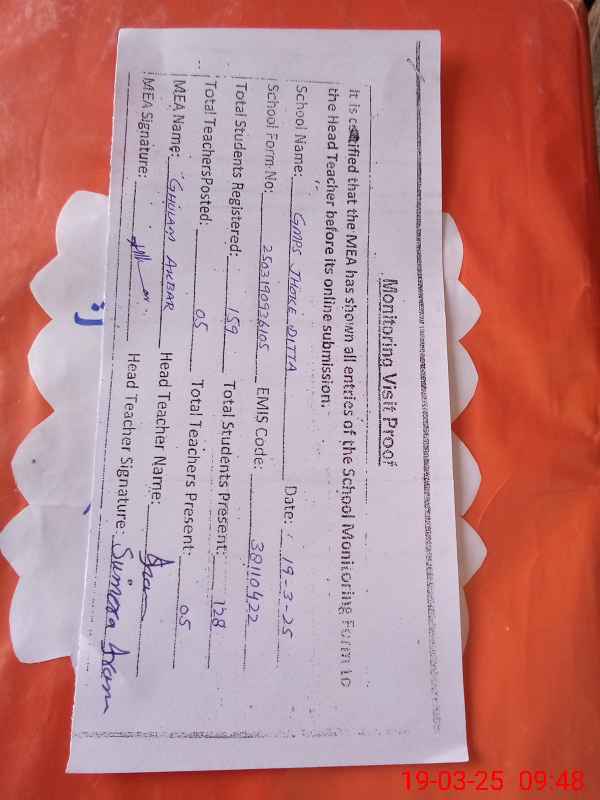 Monitoring Visit Proof
It is certified that the MEA has shown all entries of the School Monitoring Form to
the Head Teacher before its online submission.
School Name: GMPS JHOKE DITTA Date: 19-3-25
School Form No: 2503190936105 EMIS Code: 38110422
Total Students Registered: 159 Total Students Present: 128
Total TeachersPosted: 05 Total Teachers Present: 05
MEA Name: GHULAM AKBAR Head Teacher Name:
MEA Signature: Head Teacher Signature: Sumera
19-03-25 09:48